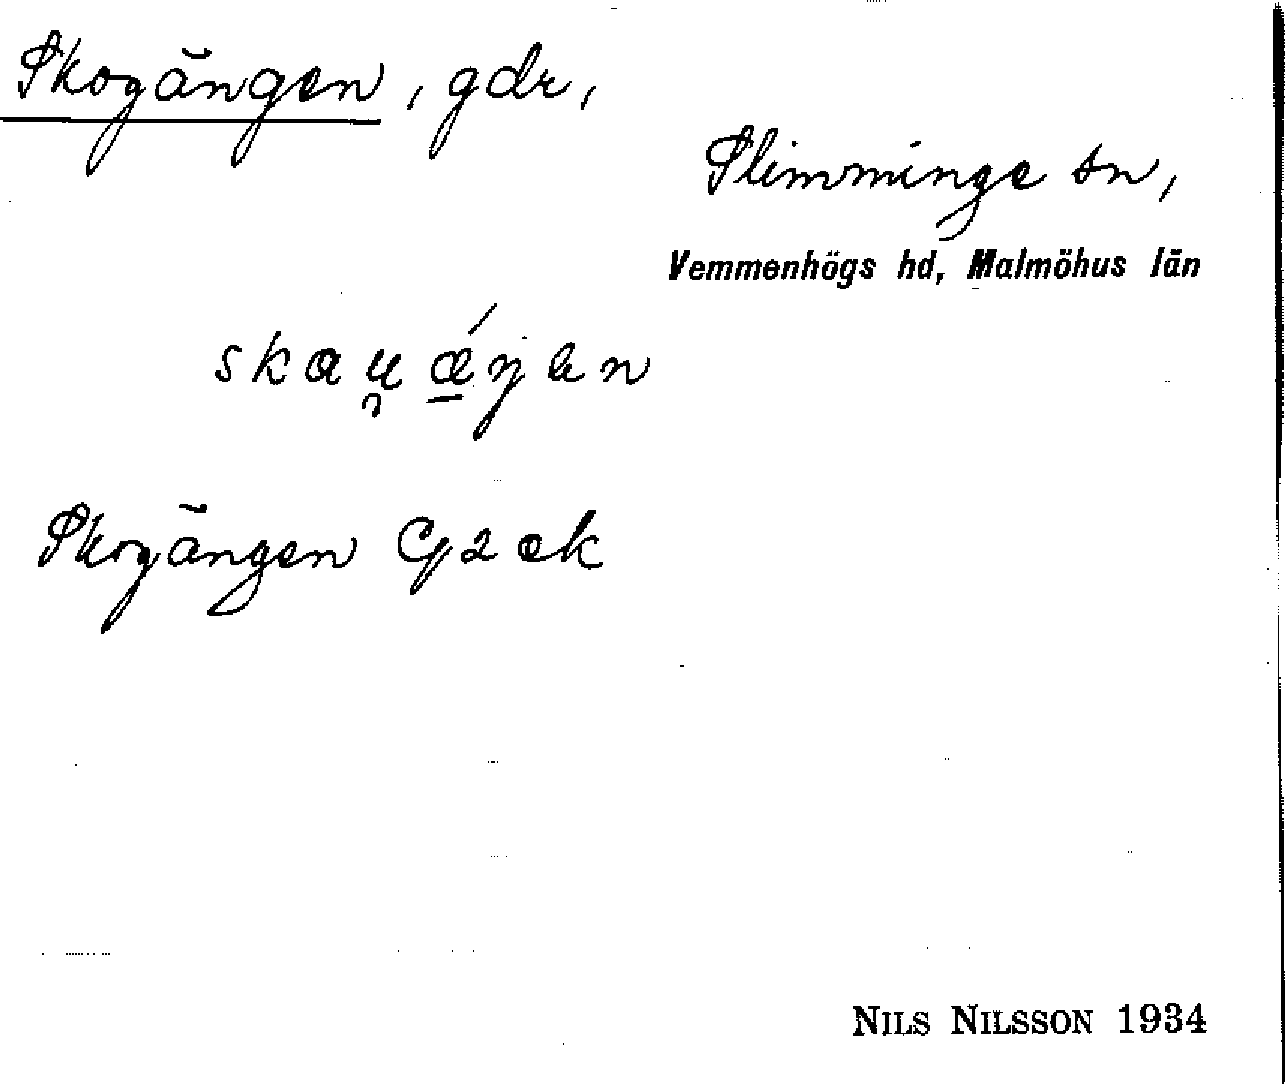 Skogängen, gdr,
Slimminge sn,
Vemmenhögs hd, Malmöhus län
skau̯ǽ̱ŋen
Skogängen G2 ek
NILS NILSSON 1934